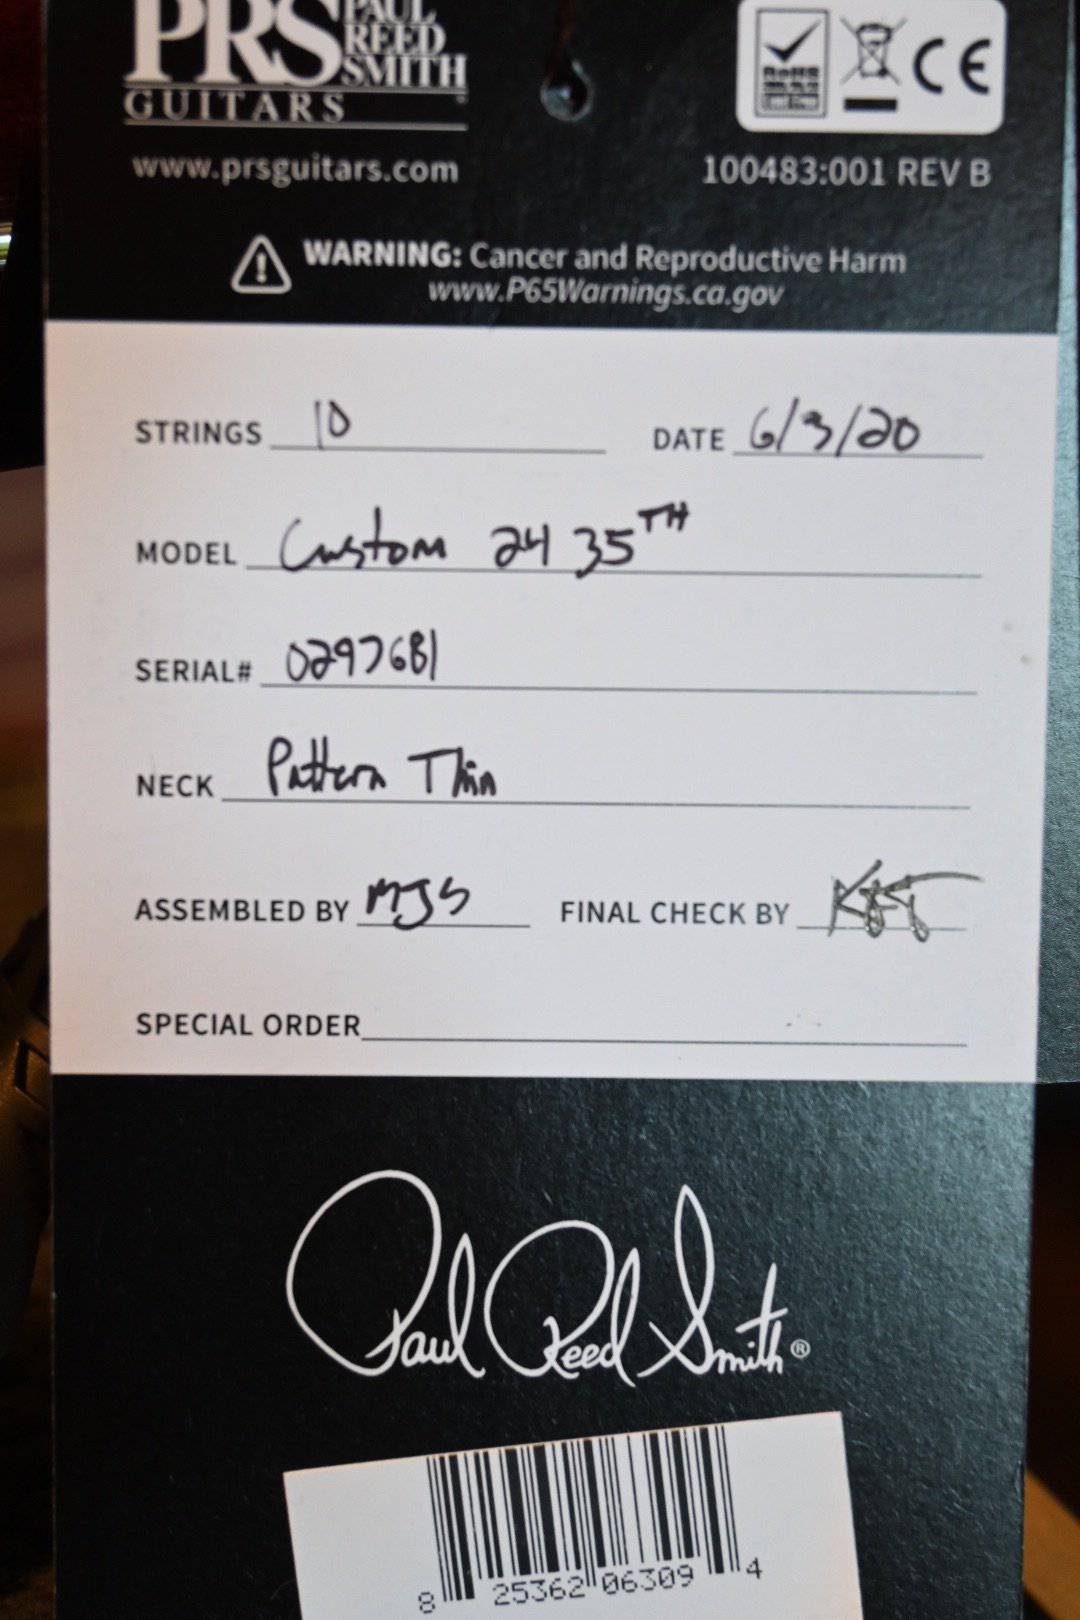 PRS PAUL
REED
SMITH
GUITARS
RoHS
CE
www.prsguitars.com
100483:001 REV B
WARNING: Cancer and Reproductive Harm
www.P65Warnings.ca.gov
STRINGS 10 DATE 6/3/20
MODEL Custom 24 35TH
SERIAL# 0297681
NECK Pattern Thin
ASSEMBLED BY MJS FINAL CHECK BY
SPECIAL ORDER
Paul Reed Smith®
8 25362 06309 4